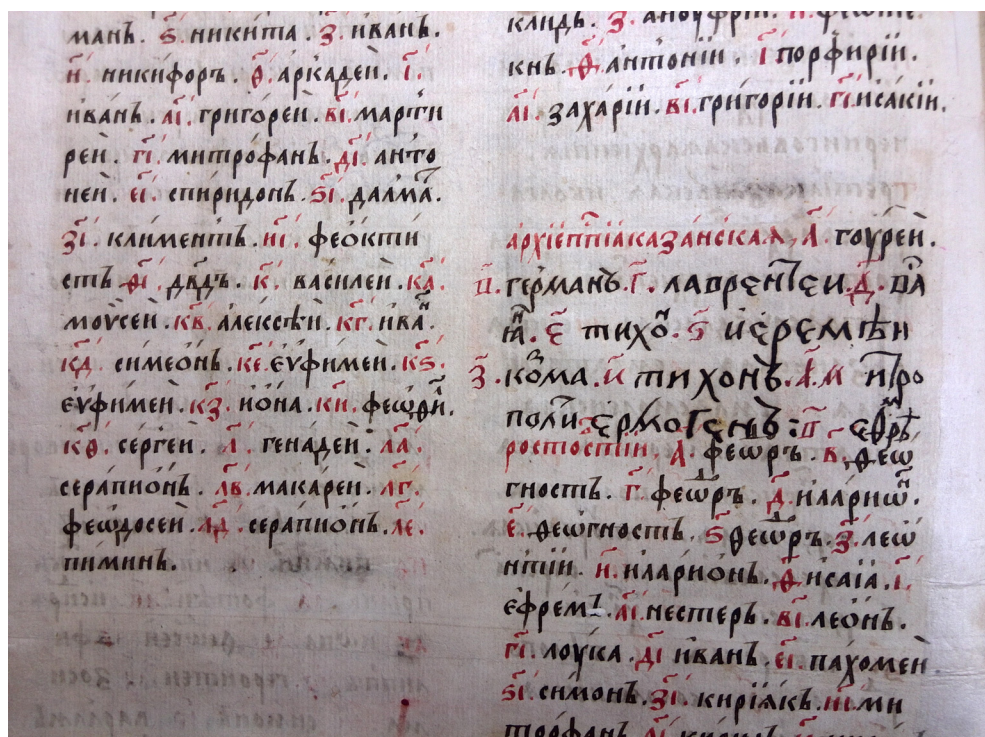 манъ. ѕ҃. никита. з҃. иванъ.
и҃. никифоръ. ѳ҃. аркадеи. і҃.
иванъ. а҃і. григореи. в҃і. мартѵ
реи. г҃і. митрофанъ. д҃і. анто
неи. є҃і. спиридонъ. ѕ҃і. далмаⷮ.
з҃і. климентъ. и҃і. феокти
стъ ѳ҃і. дв҃дъ. к҃. василеи. к҃а.
моѵсеи. к҃в. алексѣи. к҃г. иваⷩ.
к҃д. симеонъ. к҃є. еѵфимеи. к҃ѕ.
еѵфимеи. к҃з. иона. к҃и. феѡ
к҃ѳ. сергеи. л҃. генадеи. л҃а.
серапионъ. л҃в. макареи. л҃г.
феѡдосеи. л҃д. серапионъ. л҃є.
пиминъ.
з҃. аноуфріи. и҃.
кнъ. ѳ҃. антоніи. і҃ порфиріи.
а҃і. захаріи. в҃і. григоріи. г҃і. исакіи.
казанская, а҃. гоуреи.
в҃. германъ. г҃. лаврентеи. д҃. васⷭ
иаⷩ. є҃ тихоⷩ. ѕ҃ иеремѣи
з҃. коⷥма. и҃ тихонъ. а҃. м итро
полиⷮ ермогенъ: в҃ ефрѣⷨ
ростостіи. а҃. феѡръ. в҃. ѳеѡ
гностъ. г҃. феѡⷣръ. д҃. илариѡⷩ.
є҃. ѳеѡгностъ. ѕ҃ ѳеѡⷣръ. з҃. леѡ
нтіи. и҃. иларионъ. ѳ҃ исаіа. і҃.
ефремъ. а҃і. нестеръ. в҃і. леонъ.
г҃і. лоука. д҃і иванъ. є҃і. пахомеи
ѕ҃і. симонъ. з҃і. кирїякъ. и҃і ми
трофанъ.